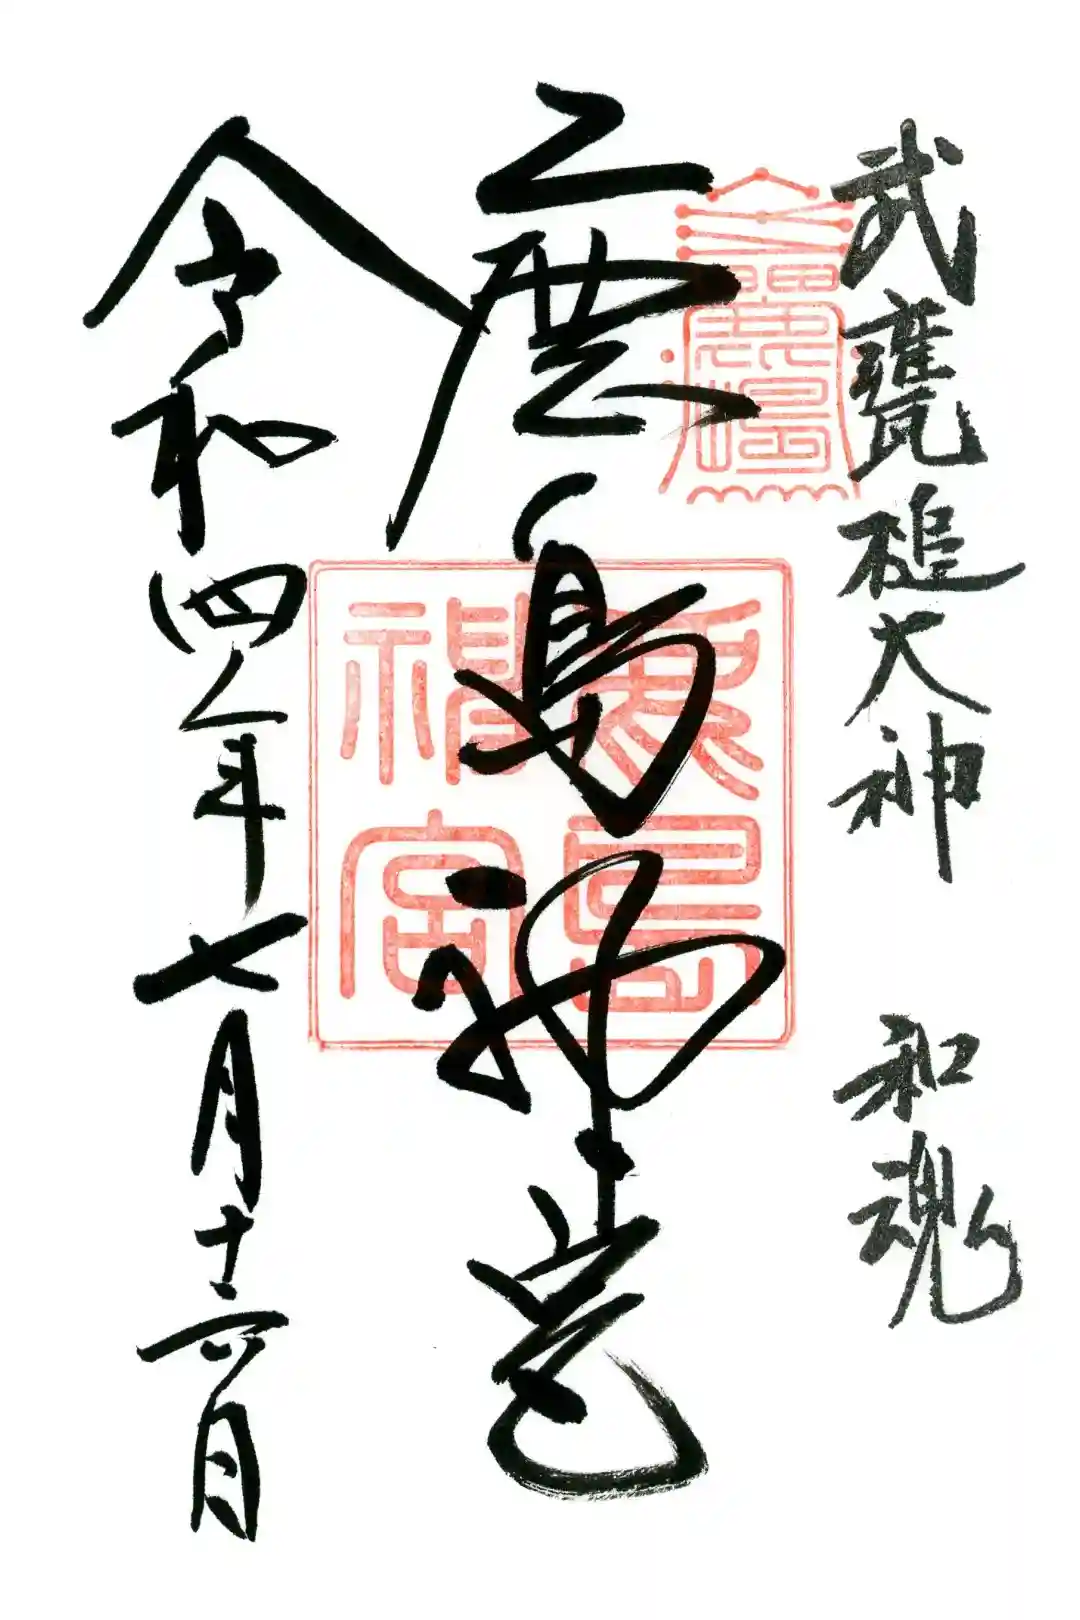 武甕槌大神 和魂
鹿島神宮
鹿島神宮
令和四年七月十六日